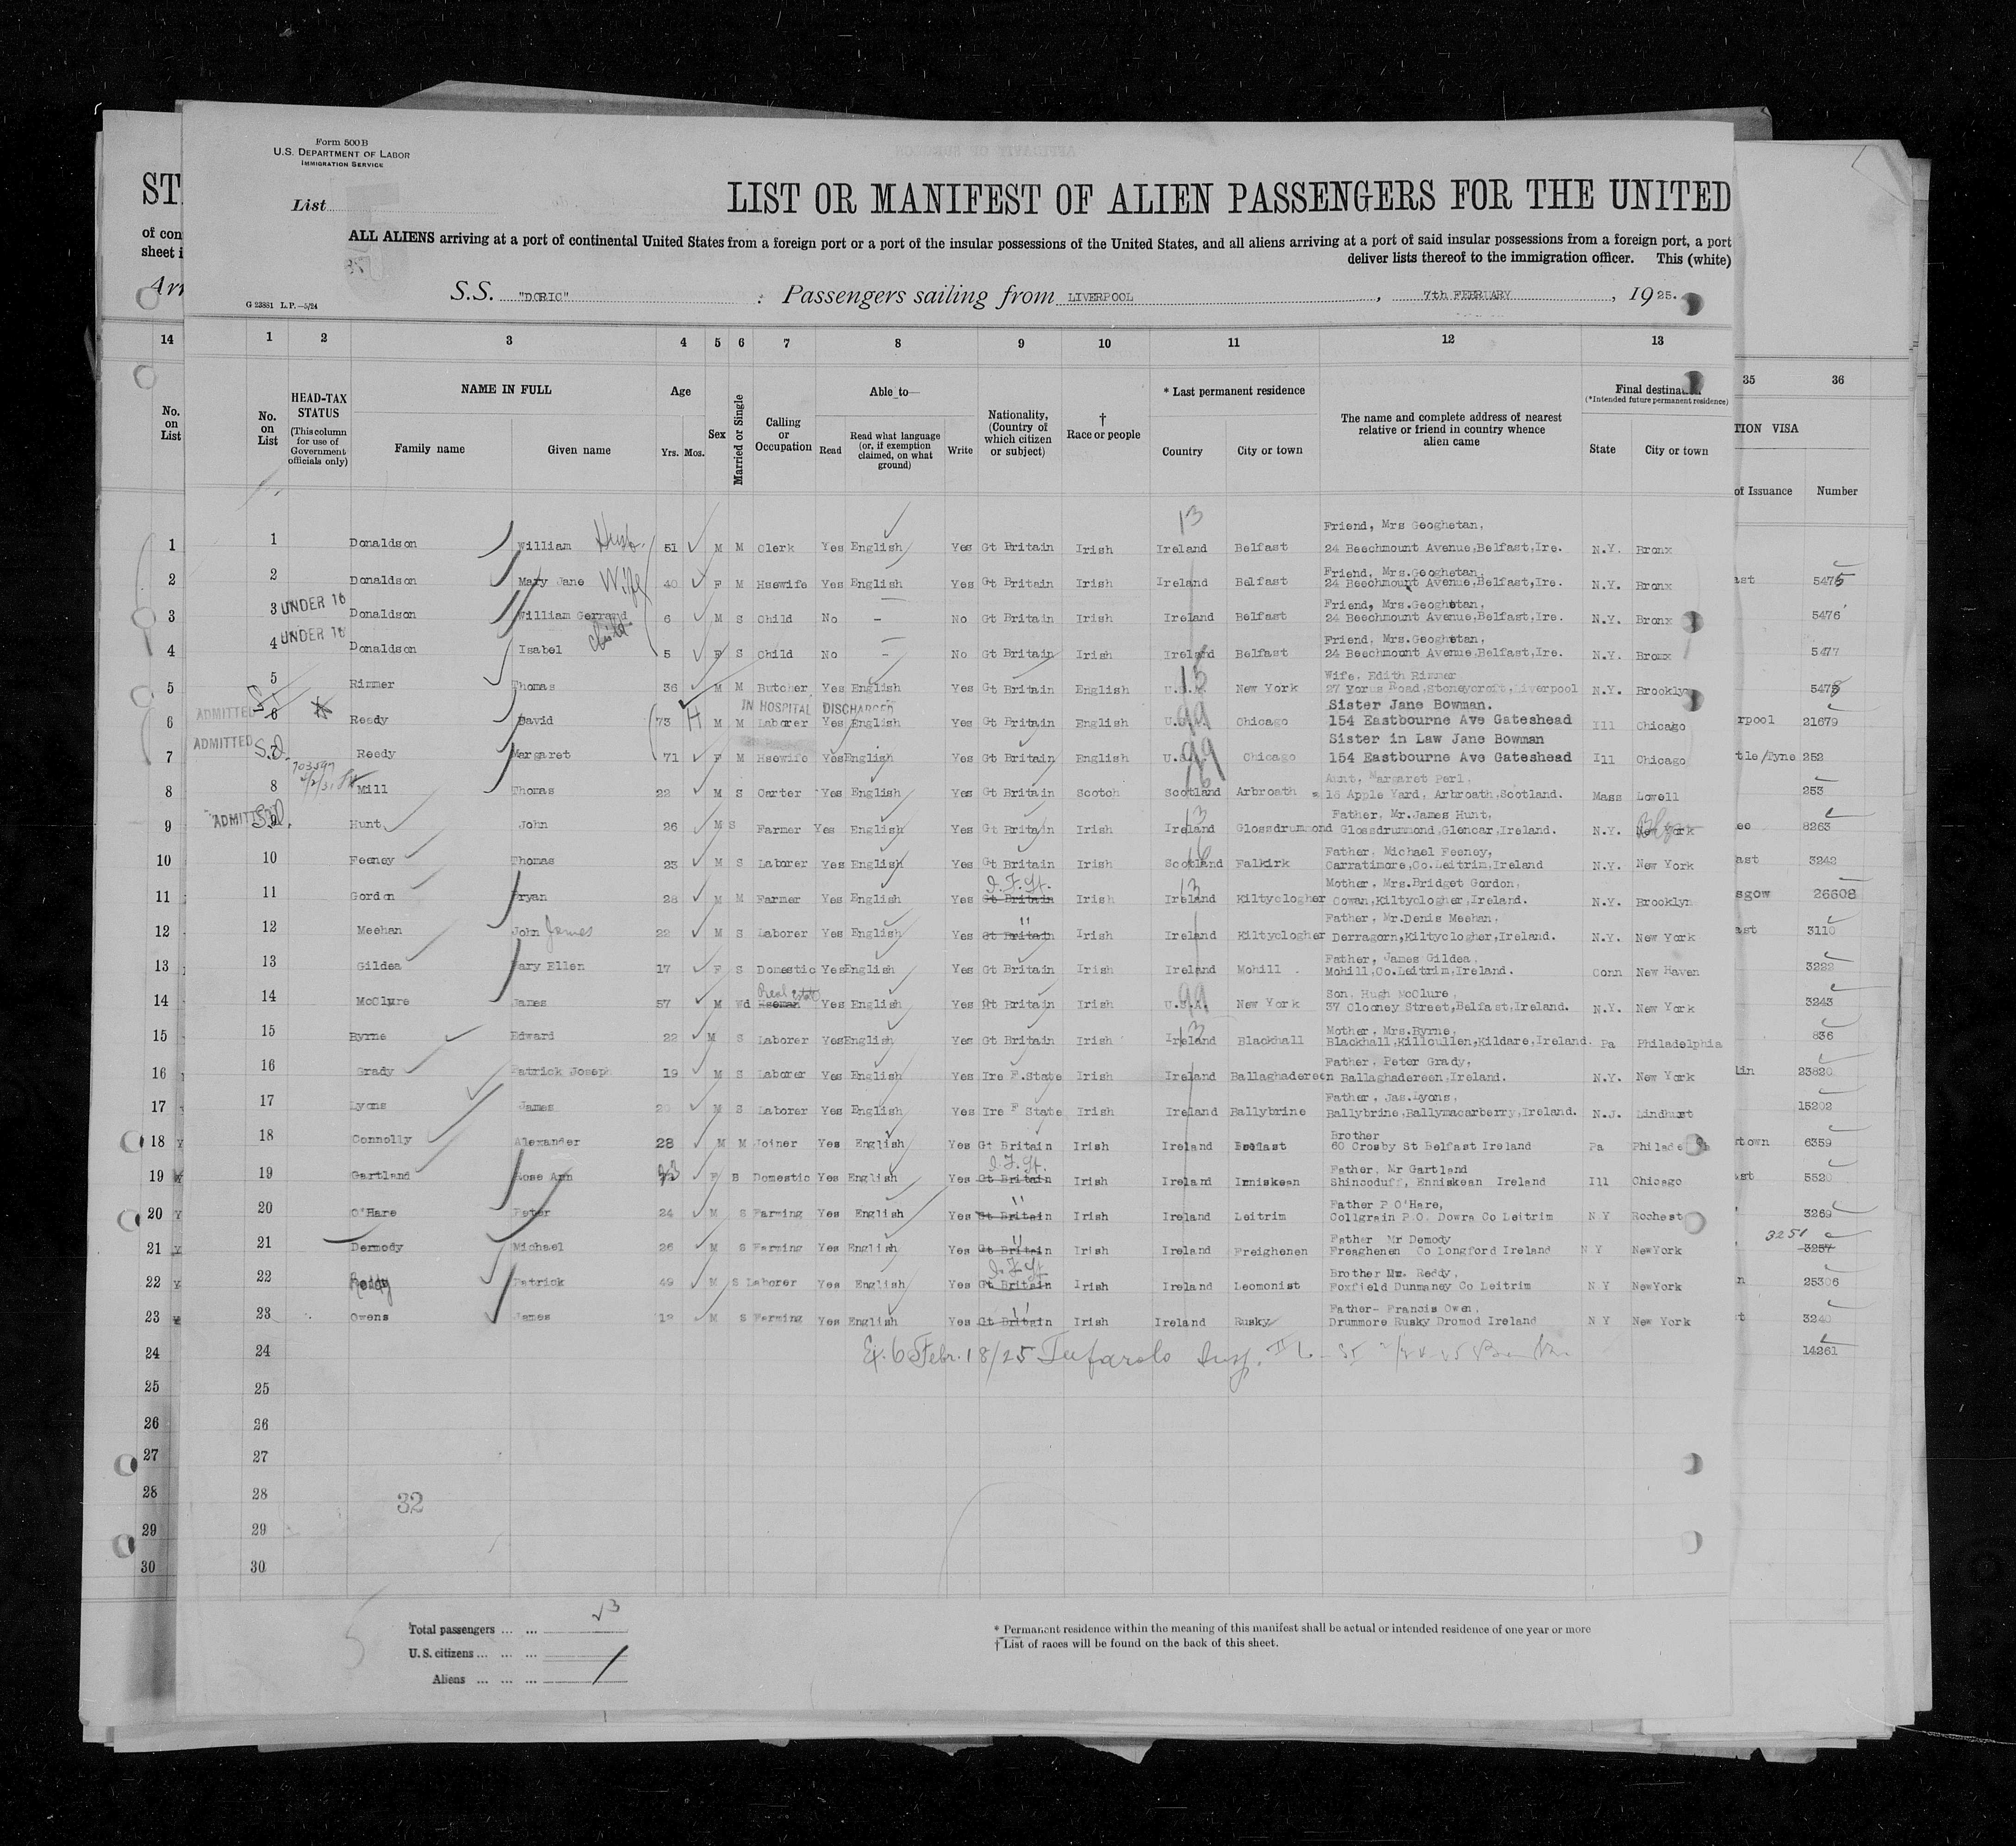 Form 500 B
U.S. DEPARTMENT OF LABOR
IMMIGRATION SERVICE
List
LIST OR MANIFEST OF ALIEN PASSENGERS FOR THE UNITED
ALL ALIENS arriving at a port of continental United States from a foreign port or a port of the insular possessions of the United States, and all aliens arriving at a port of said insular possessions from a foreign port, a port
deliver lists thereof to the immigration officer. This (white)
G 23881 L.P.—5/24
S.S. "DORIC" : Passengers sailing from LIVERPOOL, 7th FEBRUARY, 1925.
1 2 3 4 5 6 7 8 9 10 11 12 13
No. on List
HEAD-TAX STATUS (This column for use of Government officials only)
NAME IN FULL
Family name Given name
Age Yrs. Mos.
Sex
Married or Single
Calling or Occupation
Able to—
Read Read what language (or, if exemption claimed, on what ground) Write
Nationality, (Country of which citizen or subject)
† Race or people
* Last permanent residence
Country City or town
The name and complete address of nearest relative or friend in country whence alien came
Final destination (*Intended future permanent residence)
State City or town
35 36
TION VISA
of Issuance Number
13
Friend, Mrs Geoghetan,
1 Donaldson William Husb. 51 M M Clerk Yes English Yes Gt Britain Irish Ireland Belfast 24 Beechmount Avenue,Belfast,Ire. N.Y. Bronx
Friend, Mrs.Geoghetan,
2 Donaldson Mary Jane Wife 40 F M Hsewife Yes English Yes Gt Britain Irish Ireland Belfast 24 Beechmount Avenue,Belfast,Ire. N.Y. Bronx ast 5475
Friend, Mrs.Geoghetan,
3 UNDER 16 Donaldson William Gerrard 6 M S Child No - No Gt Britain Irish Ireland Belfast 24 Beechmount Avenue,Belfast,Ire. N.Y. Bronx 5476
Friend, Mrs.Geoghetan,
4 UNDER 16 Donaldson Isabel Child 5 F S Child No - No Gt Britain Irish Ireland Belfast 24 Beechmount Avenue,Belfast,Ire. N.Y. Bronx 5477
Wife, Edith Rimmer
5 Rimmer Thomas 36 M M Butcher Yes English Yes Gt Britain English U.S.A. New York 27 Yorus Road,Stoneycroft,Liverpool N.Y. Brooklyn 5478
IN HOSPITAL DISCHARGED
Sister Jane Bowman.
ADMITTED 6 Reedy David 73 H M M Laborer Yes English Yes Gt Britain English U.S.A. 99 Chicago 154 Eastbourne Ave Gateshead Ill Chicago rpool 21679
Sister in Law Jane Bowman
ADMITTED S.I. 7 Reedy Margaret 71 F M Hsewife Yes English Yes Gt Britain English U.S.A. 99 Chicago 154 Eastbourne Ave Gateshead Ill Chicago tle/Tyne 252
Aunt, Margaret Perl,
8 Mill Thomas 22 M S Carter Yes English Yes Gt Britain Scotch Scotland Arbroath 16 Apple Yard, Arbroath,Scotland. Mass Lowell 253
Father, Mr.James Hunt,
ADMITTED 9 Hunt John 26 M S Farmer Yes English Yes Gt Britain Irish Ireland Glossdrummond Glossdrummond,Glencar,Ireland. N.Y. New York ee 8263
Father, Michael Feeney,
10 Feeney Thomas 23 M S Laborer Yes English Yes Gt Britain Irish Scotland Falkirk Carratimore,Co.Leitrim,Ireland N.Y. New York ast 3242
I.F.St.
Mother, Mrs.Bridget Gordon,
11 Gordon Bryan 28 M M Farmer Yes English Yes Gt Britain Irish Ireland Kiltyclogher Cowan,Kiltyclogher,Ireland. N.Y. Brooklyn sgow 26608
Father, Mr.Denis Meehan,
12 Meehan John James 22 M S Laborer Yes English Yes Gt Britain Irish Ireland Kiltyclogher Derragorn,Kiltyclogher,Ireland. N.Y. New York ast 3110
Father, James Gildea,
13 Gildea Mary Ellen 17 F S Domestic Yes English Yes Gt Britain Irish Ireland Mohill Mohill,Co.Leitrim,Ireland. Conn New Haven 3222
Real estate
Son, Hugh McClure,
14 McClure James 57 M Wd Yes English Yes Gt Britain Irish U.S.A. 99 New York 37 Clooney Street,Belfast,Ireland. N.Y. New York 3243
Mother, Mrs.Byrne,
15 Byrne Edward 22 M S Laborer Yes English Yes Gt Britain Irish Ireland Blackhall Blackhall,Killcullen,Kildare,Ireland. Pa Philadelphia 836
Father, Peter Grady,
16 Grady Patrick Joseph 19 M S Laborer Yes English Yes Ire F.State Irish Ireland Ballaghadereen Ballaghadereen,Ireland. N.Y. New York lin 23820
Father, Jas.Lyons,
17 Lyons James 20 M S Laborer Yes English Yes Ire F State Irish Ireland Ballybrine Ballybrine,Ballymacarberry,Ireland. N.J. Lindhurst 15202
Brother
18 Connolly Alexander 28 M M Joiner Yes English Yes Gt Britain Irish Ireland Belfast 60 Crosby St Belfast Ireland Pa town 6359
I.F.St.
Father, Mr Gartland
19 Gartland Rose Ann F S Domestic Yes English Yes Gt Britain Irish Ireland Inniskean Shincoduff, Enniskean Ireland Ill Chicago ast 5520
Father P O'Hare,
20 O'Hare Peter 24 M S Farming Yes English Yes Gt Britain Irish Ireland Leitrim Collgrain P.O. Dowra Co Leitrim N Y Rochest 3269
Father Mr Demody
21 Dermody Michael 26 M S Farming Yes English Yes Gt Britain Irish Ireland Freighenen Freaghenen Co Longford Ireland N Y NewYork 3251 3257
I.F.St
Brother Mr. Reddy,
22 Reddy Patrick 49 M S Laborer Yes English Yes Gt Britain Irish Ireland Leomonist Foxfield Dunmaney Co Leitrim N Y NewYork n 25306
Father- Francis Owen,
23 Owens James M S Farming Yes English Yes Gt Britain Irish Ireland Rusky Drummore Rusky Dromod Ireland N Y New York t 3240
24 Febr. 18/25 14261
25
26
27
28
29
30
32
Total passengers ... ... 23
U.S. citizens ... ... ...
Aliens ... ... ...
* Permanent residence within the meaning of this manifest shall be actual or intended residence of one year or more
† List of races will be found on the back of this sheet.